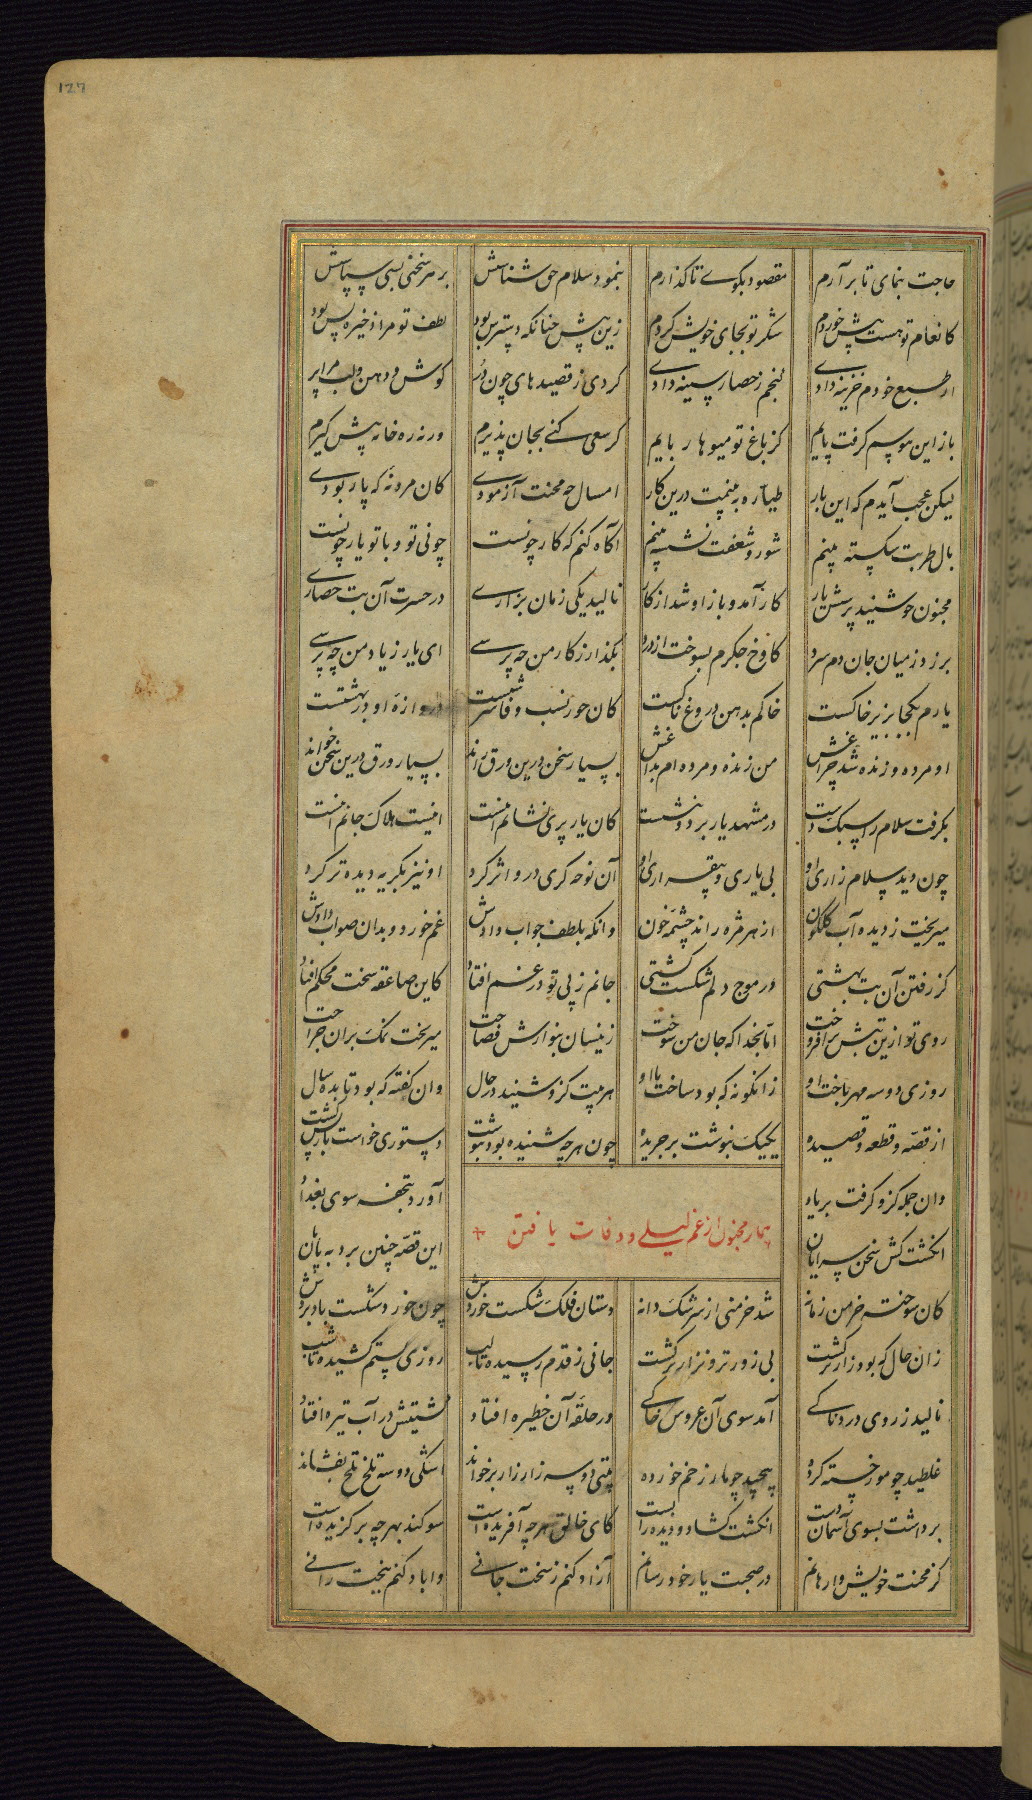 127
حاجت بنمای تا برآرم مقصود بگوی تا گذارم بنمود سلام حق شناسش بر هر سخنی بسی سپاسش
کانعام تو هست پیش خوردم شکر تو بجای خویش کردم زین پیش چنانکه دسترس بود لطف تو مرا ذخیره بس بود
از طبع خودم خزینه دادی گنجم ز حصار سینه دادی کردی ز قصیدهای چون در گوش و دهن و لب مرا پر
باز این هوسم گرفت پایم کز باغ تو میوها ربایم گر سعی کنی بجان پذیرم ورنه ره خانه پیش گیرم
لیکن عجب آیدم که این بار طیاره نه بینمت درین کار امسال چه محنت آزمودی کان مرد نه که پار بودی
بال طربت شکسته بینم شور و شغفت نشسته بینم آگاه کنم که کار چونست چونی تو و با تو یار چونست
مجنون چو شنید پرسش یار کار آمد و باز او شد از کار نالید یکی زمان بزاری در حسرت آن بت حصاری
برزد ز میان جان دم سرد کاوخ جگرم بسوخت از درد بگذار ز کار من چه پرسی ای یار ز یار من چه پرسی
یارم بکجا بزیر خاکست خاکم بدهن دروغ پاکست کان حور نسب وفا سرشتست دروازه او در بهشتست
او مرده و زنده شد چراغش من زنده و مرده ام بداغش بسیار سخن درین ورق راند بسیار ورق درین سخن خواند
بگرفت سلام را سبک دست در مشهد یار برد و بنشست کان یار پری نشانم اینست اینست هلاک جانم اینست
چون دید سلام زاری او بی یاری و بیقراری او آن نوحه گری درو اثر کرد او نیز بگریه دیده تر کرد
میریخت ز دیده آب گلگون از هر مژه راند چشمه خون وانگه بلطف جواب دادش غم خورد و بدان صواب دادش
کز رفتن آن بت بهشتی در موج دلم شکست کشتی جانم ز پی تو در غم افتاد کاین صاعقه سخت محکم افتاد
روی تو ازین تپش برافروخت اما بخدا که جان من سوخت زینسان بنوازش فصاحت میریخت نمک بران جراحت
روزی دو سه مهر باخت با او زانگونه که بود ساخت با او هر بیت کزو شنید در حال وان گفته که بود تا بده سال
از قصه و قطعه و قصیده یکیک بنوشت بر جریده چون هرچه شنیده بود بنوشت دستوری خواست باز پس گشت
وان جمله کزو گرفت بر یاد آورد بتحفه سوی بغداد
بیمار مجنون از غم لیلی و وفات یافتن
انگشت کش سخن سرایان این قصه چنین برد به پایان
کان سوخته خرمن زمانه شد خرمنی از سرشک دانه دستان فلک شکست خوردش چون خورد شکست باد بردش
زان حال که بود زارتر گشت بی زورتر و نزارتر گشت جانی ز قدم رسیده تا لب روزی بستم کشیده تا شب
نالید ز روی دردناکی آمد سوی آن عروس خاکی در حلقه آن خطیره افتاد کشتیش در آب تیره افتاد
غلطید چو مور خسته کرده پیچید چو مار زخم خورده بیتی دو سه زار زار برخواند اشکی دو سه تلخ تلخ بفشاند
برداشت بسوی آسمان دست انگشت گشاد و دیده را بست کای خالق هرچه آفریده است سوگند بهرچه برگزیده است
کز محنت خویش وارهانم در صحبت یار خود رسانم آزاد کنم ز سخت جانی و آباد کنم بنیکبخت رانی